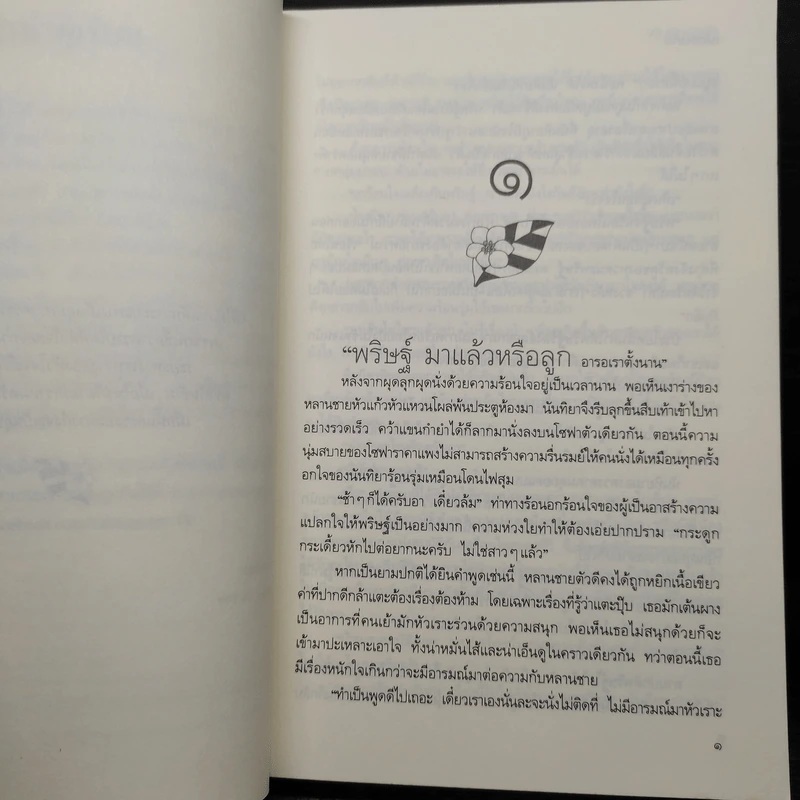 ๑
“พริษฐ์ มาแล้วหรือลูก อารอเราตั้งนาน”
หลังจากผุดลุกผุดนั่งด้วยความร้อนใจอยู่เป็นเวลานาน พอเห็นเงาร่างของ
หลานชายหัวแก้วหัวแหวนโผล่พ้นประตูห้องมา นันทิยาจึงรีบลุกขึ้นสืบเท้าเข้าไปหา
อย่างรวดเร็ว คว้าแขนกำยำได้ก็ลากมานั่งลงบนโซฟาตัวเดียวกัน ตอนนี้ความ
นุ่มสบายของโซฟาราคาแพงไม่สามารถสร้างความรื่นรมย์ให้คนนั่งได้เหมือนทุกครั้ง
อกใจของนันทิยาร้อนรุ่มเหมือนโดนไฟสุม
“ช้าๆ ก็ได้ครับอา เดี๋ยวล้ม” ท่าทางร้อนอกร้อนใจของผู้เป็นอาสร้างความ
แปลกใจให้พริษฐ์เป็นอย่างมาก ความห่วงใยทำให้ต้องเอ่ยปากปราม “กระดูก
กระเดี้ยวหักไปต่อยากนะครับ ไม่ใช่สาวๆ แล้ว”
หากเป็นยามปกติได้ยินคำพูดเช่นนี้ หลานชายตัวดีคงได้ถูกหยิกเนื้อเขียว
ค่าที่ปากดีกล้าแตะต้องเรื่องต้องห้าม โดยเฉพาะเรื่องที่รู้ว่าแตะปุ๊บ เธอมักเต้นผาง
เป็นอาการที่คนเย้ามักหัวเราะร่วนด้วยความสนุก พอเห็นเธอไม่สนุกด้วยก็จะ
เข้ามาปะเหลาะเอาใจ ทั้งน่าหมั่นไส้และน่าเอ็นดูในคราวเดียวกัน ทว่าตอนนี้เธอ
มีเรื่องหนักใจเกินกว่าจะมีอารมณ์มาต่อความกับหลานชาย
“ทำเป็นพูดดีไปเถอะ เดี๋ยวเราเองนั่นละจะนั่งไม่ติดที่ ไม่มีอารมณ์มาหัวเราะ
๑